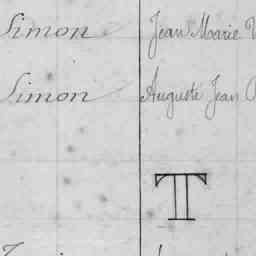 Simon Jean Marie
Simon Auguste Jean
T